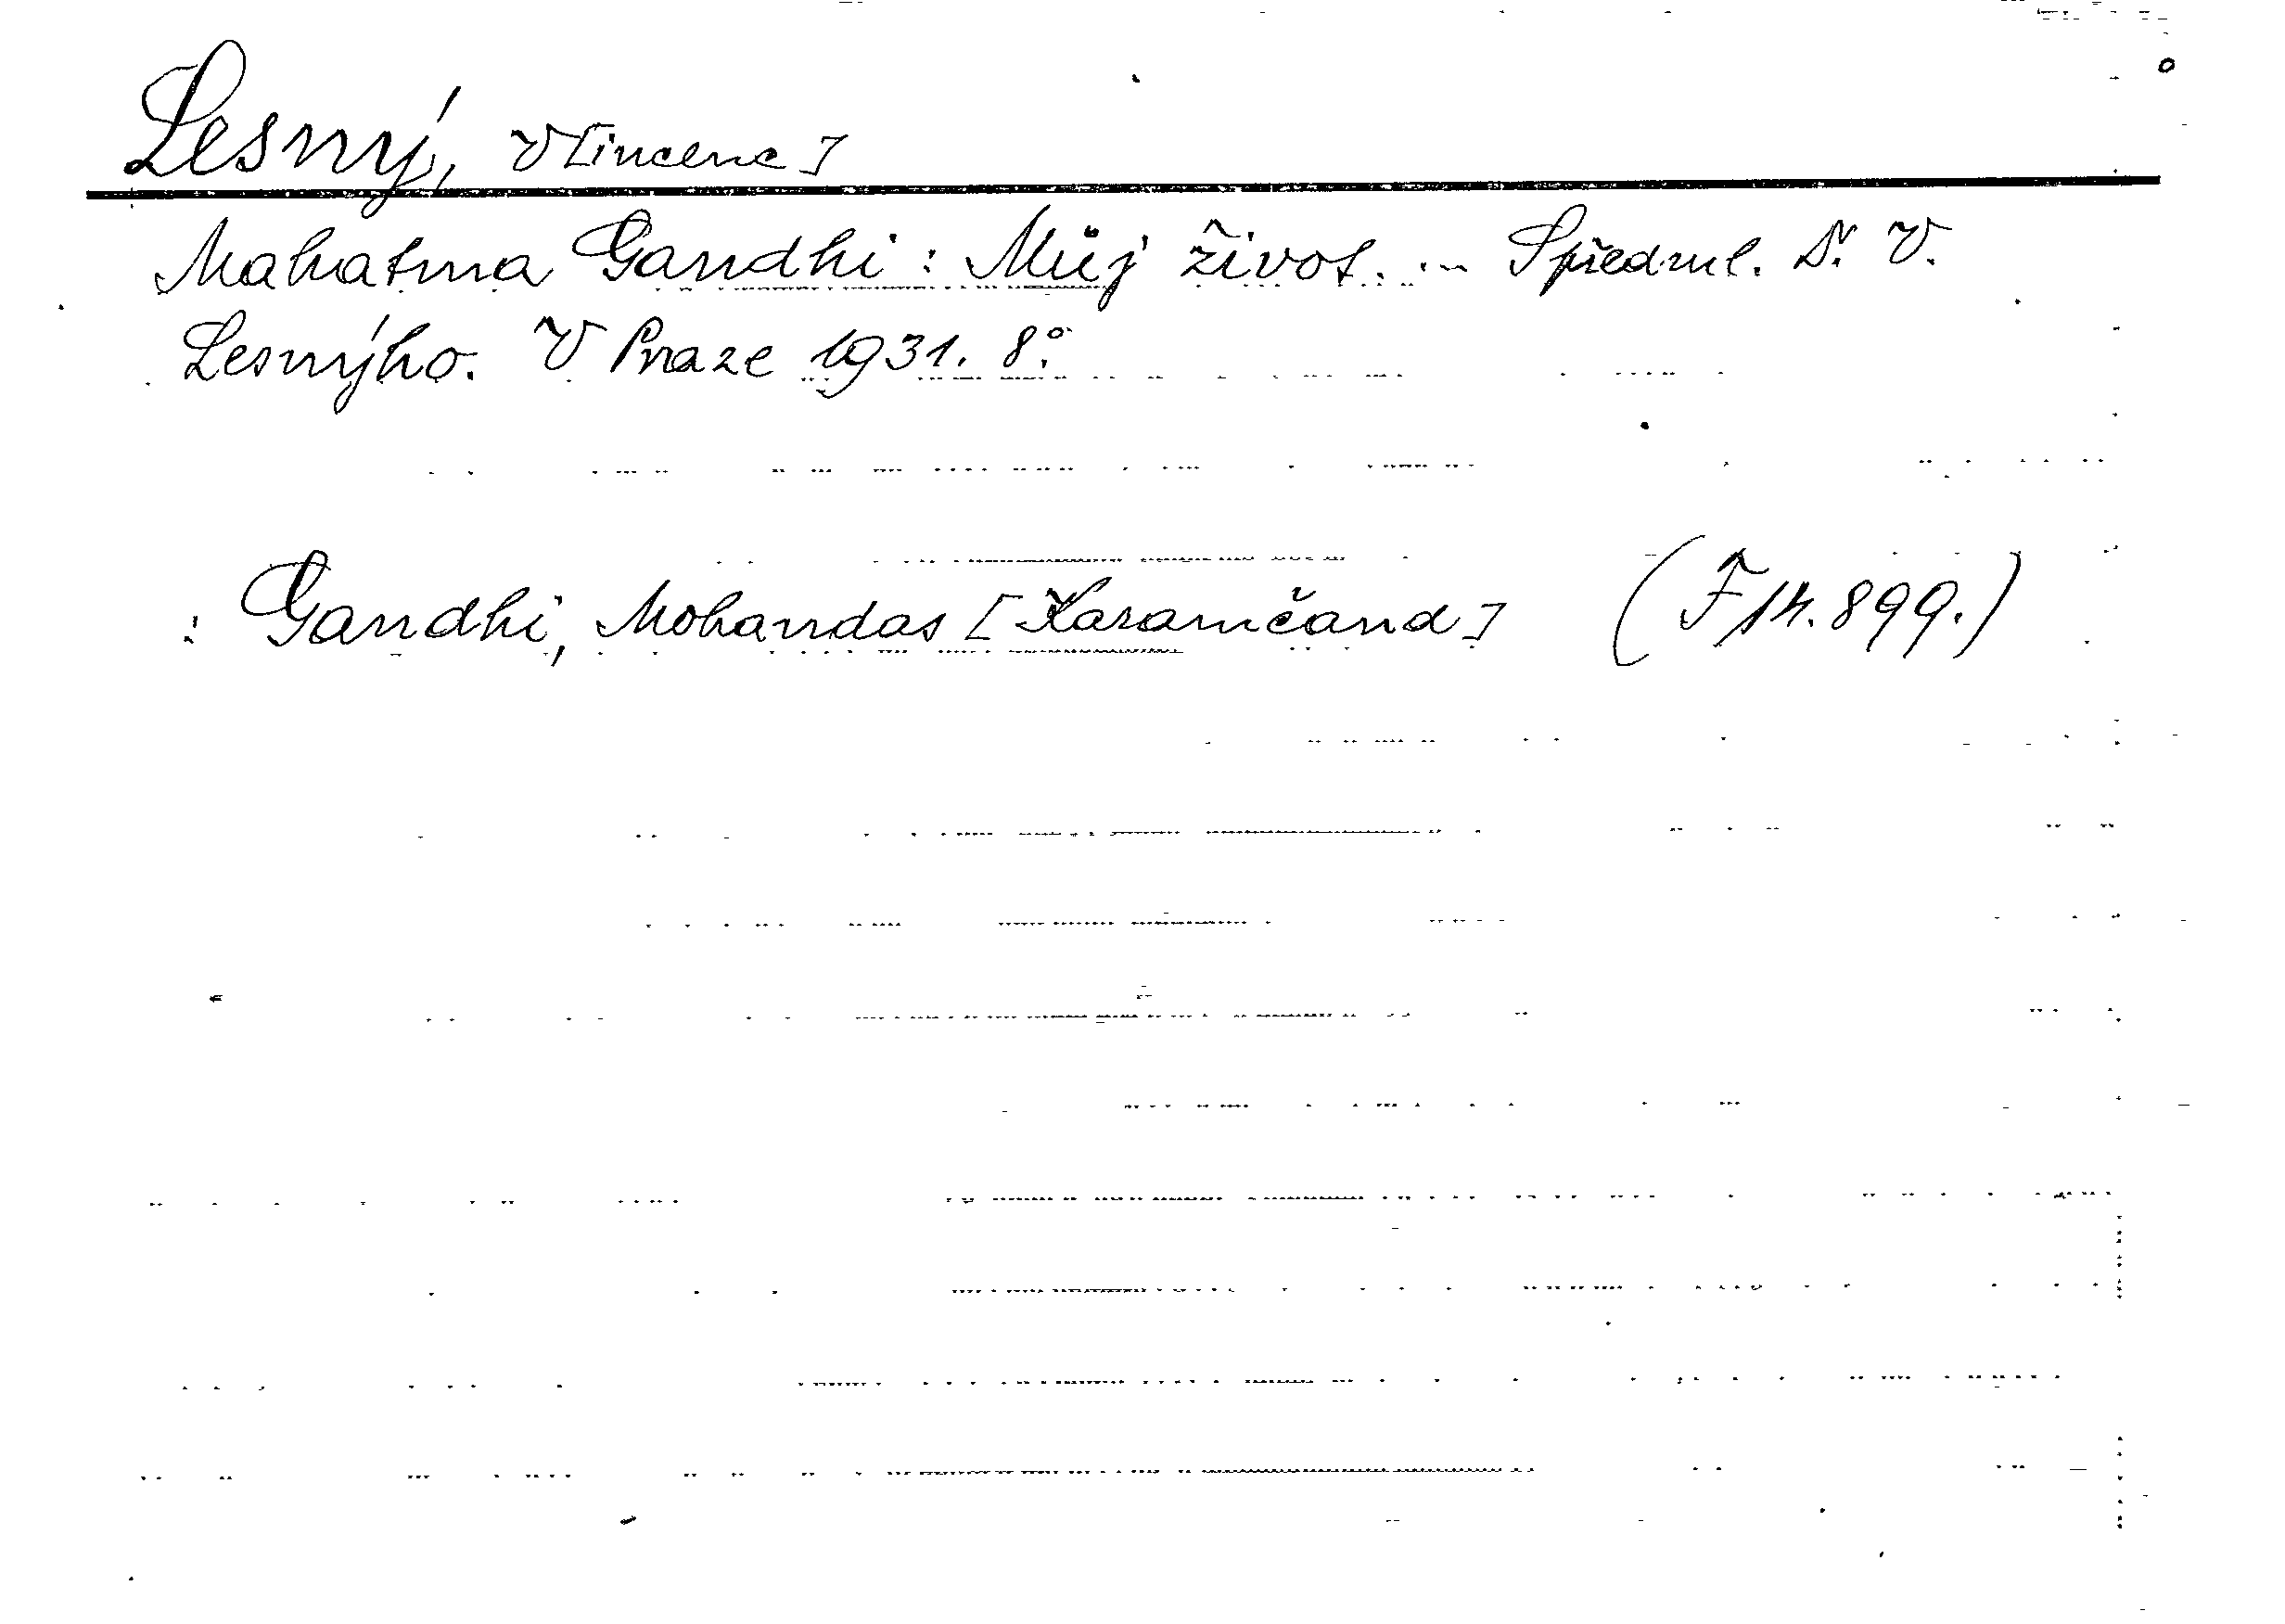 Lesný, V[incenc]
Mahatma Gandhi: Můj život. ... S předml. D. V.
Lesnýho. V Praze 1931. 8°.
: Gandhi, Mohandas [Karamčand] (F 14.899.)